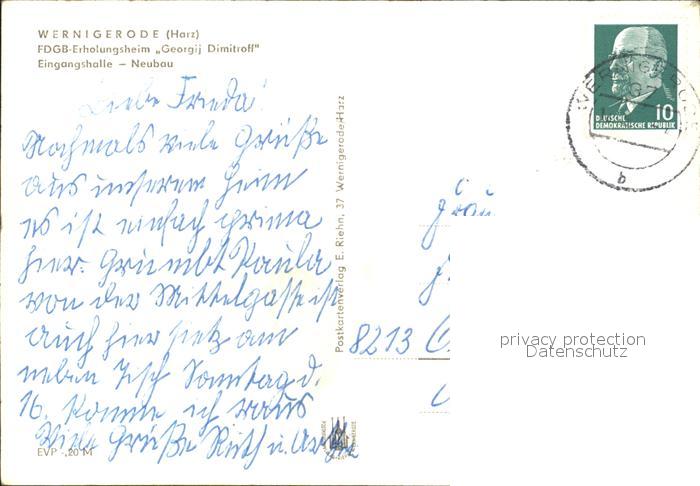 WERNIGERODE (Harz)
FDGB-Erholungsheim „Georgij Dimitroff"
Eingangshalle – Neubau
Liebe Frieda!
Nochmals viele Grüße
aus unserem Heim
es ist einfach prima
hier. Paula
von der Mittelgasse ist
auch hier sietz am
neben Tisch Sonntag d.
16. komme ich raus
Viele Grüße Ruth u.
EVP -,20 M
Postkartenverlag E. Riehn, 37 Wernigerode-Harz
10
DEUTSCHE
DEMOKRATISCHE REPUBLIK
b
Frau
8213
privacy protection
Datenschutz